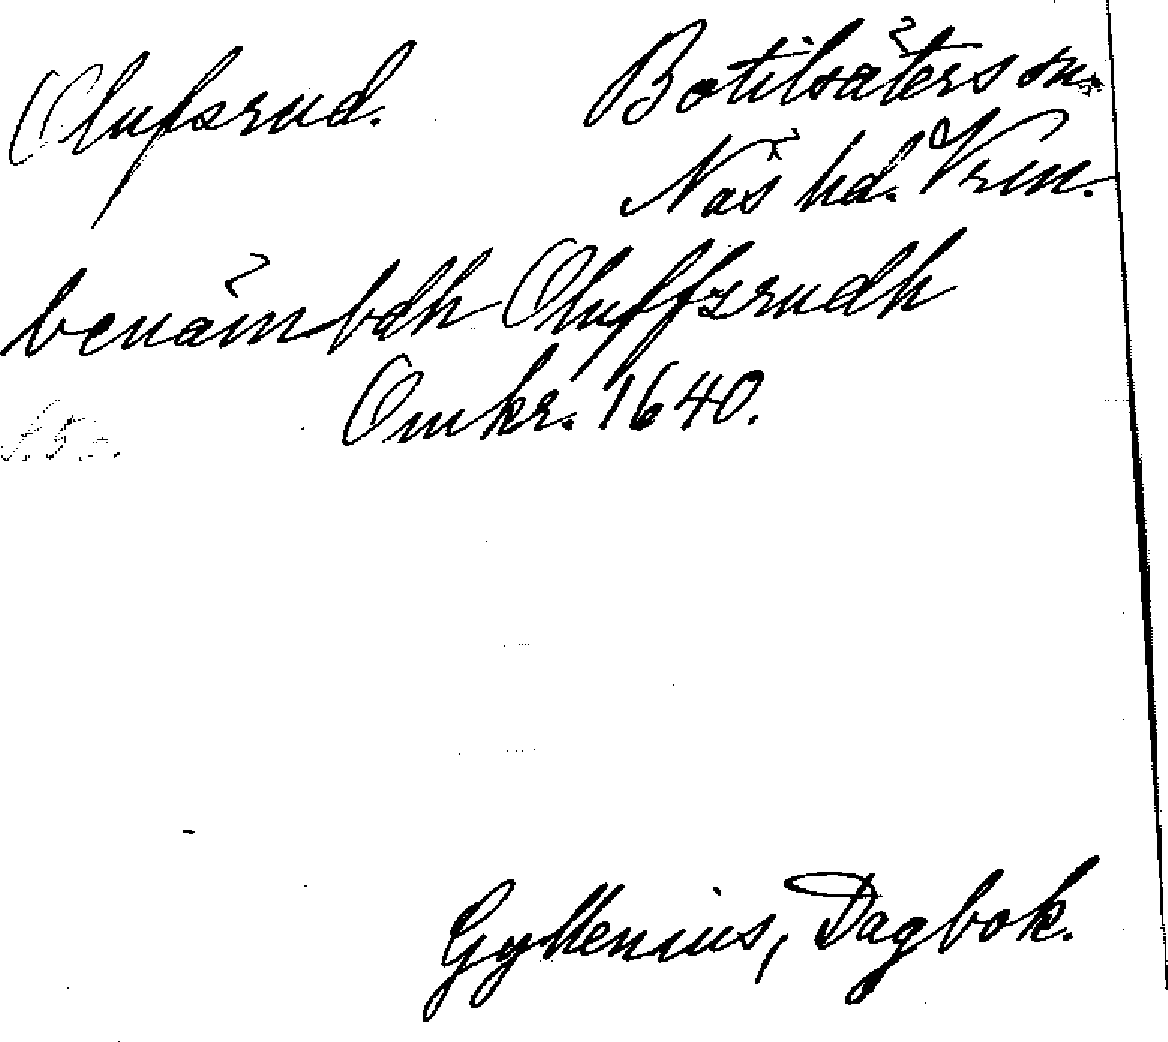 Olufsrud. Botilsäters sn.
Näs hd. Vrm.
benämbdh Oluffzrudh
Omkr. 1640.
Gyllenius, Dagbok.